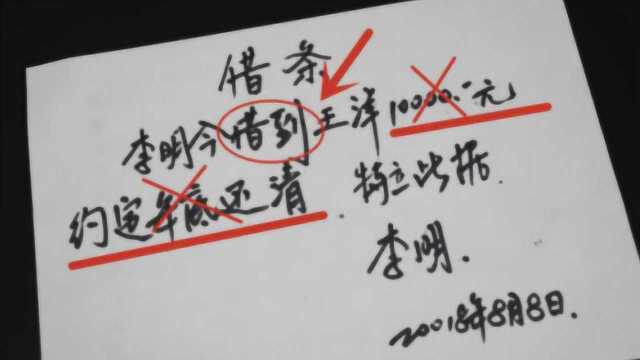 借条
李明今借到王洋10000.元
约定年底还清.特立此据.
李明.
20018年8月8日.